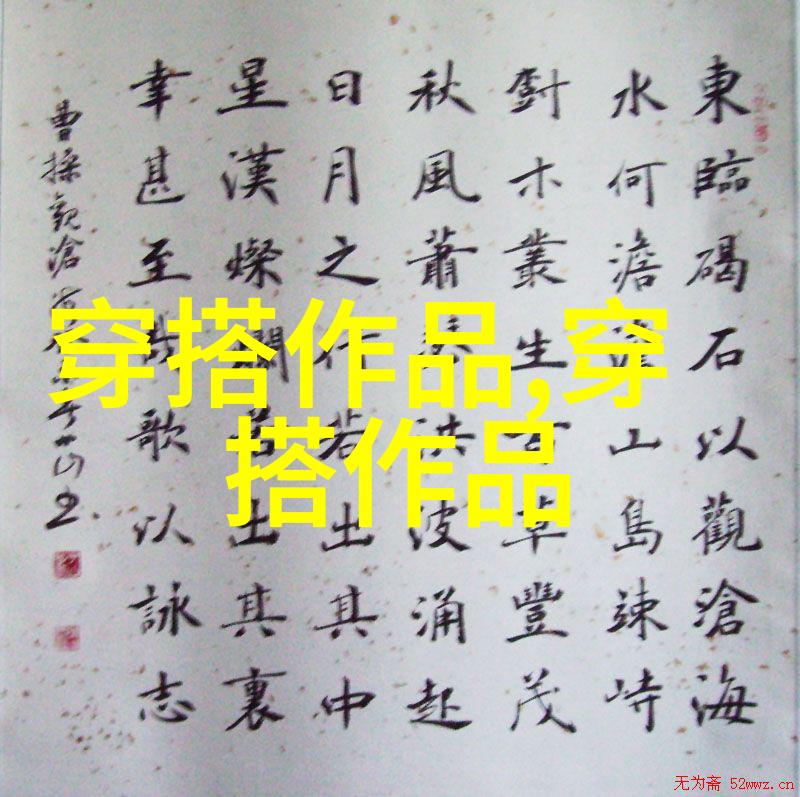 東臨碣石以觀滄海
水何澹澹山島竦峙
木叢生草豐茂
秋風蕭洪波涌起
日月之行若出其中
星漢燦爛若出其裏
幸甚至哉歌以詠志
曹操觀滄
穿搭作品,穿
搭作品
无为斋 52wwz.cn